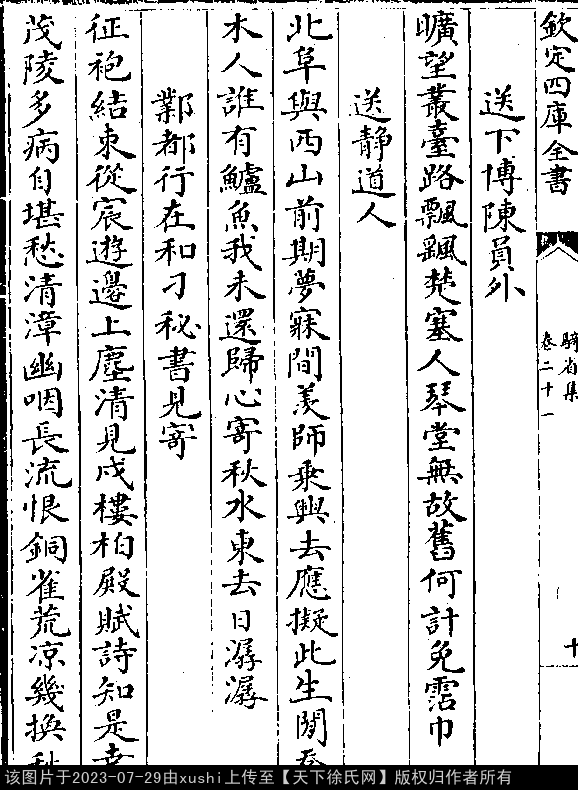 欽定四庫全書
騎省集
卷二十一
十
送下博陳員外
曠望叢臺路飄飄楚塞人琴堂無故舊何計免霑巾
送静道人
北阜與西山前期夢寐間羨師乗興去應擬此生閒
木人誰有鱸魚我未還歸心寄秋水東去日潺潺
鄴都行在和刁秘書見寄
征袍結束從宸遊邊上塵清見戍樓柏殿賦詩知是
茂陵多病自堪愁清漳幽咽長流恨銅雀荒凉幾換
该图片于2023-07-29由xushi上传至【天下徐氏网】版权归作者所有